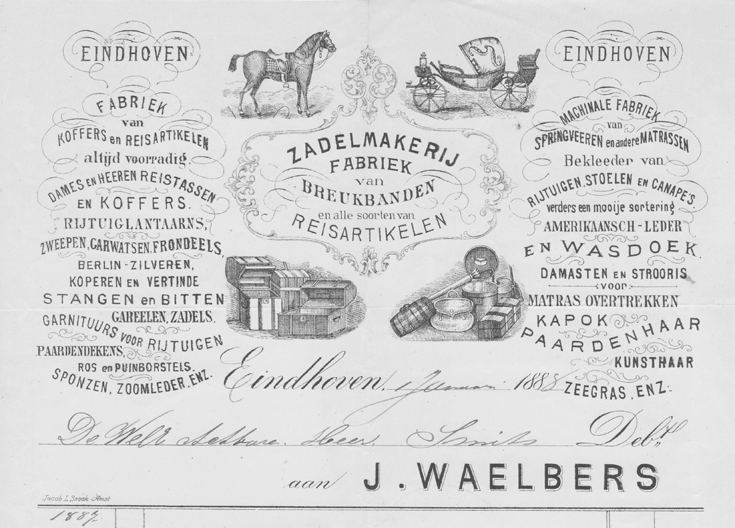 EINDHOVEN
FABRIEK
van
KOFFERS en REISARTIKELEN
altijd voorradig.
DAMES EN HEEREN REISTASSEN
EN KOFFERS.
RIJTUIGLANTAARNS,
ZWEEPEN, GARWATSEN, FRONDEELS,
BERLIN-ZILVEREN,
KOPEREN EN VERTINDE
STANGEN en BITTEN
GAREELEN, ZADELS.
GARNITUURS VOOR RIJTUIGEN
PAARDENDEKENS,
ROS en PUINBORSTELS,
SPONZEN, ZOOMLEDER, ENZ.
ZADELMAKERIJ
FABRIEK
van
BREUKBANDEN
en alle soorten van
REISARTIKELEN
EINDHOVEN
MACHINALE FABRIEK
van
SPRINGVEEREN en andere MATRASSEN
Bekleeder van
RIJTUIGEN, STOELEN EN CANAPE'S
verders een mooije sortering
AMERIKAANSCH-LEDER
EN WASDOEK.
DAMASTEN EN STROORIS
voor
MATRAS OVERTREKKEN
KAPOK
PAARDENHAAR
KUNSTHAAR
ZEEGRAS, ENZ.
Eindhoven, 1 Januari 1888
De Welk Achtbare Heer Smits Debt.
aan J. WAELBERS
Jacob L. Snoek Amst
1887